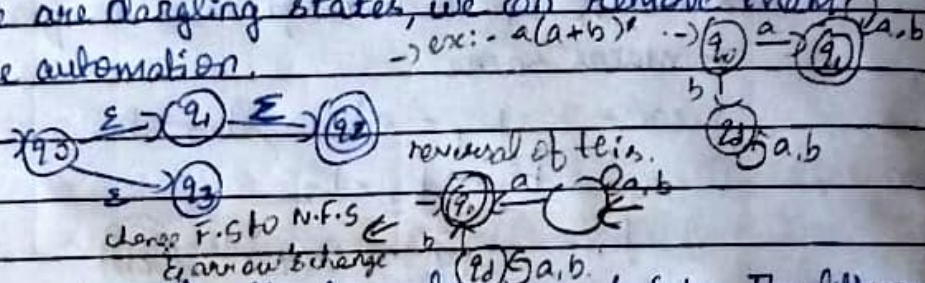 e are dangling states, we can remove them
e automation.
→ ex:- a(a+b)* → q0 a q1 a,b
b
qd a,b
q0 Σ q1 Σ q2
Σ q3
reversal of this.
→ q0 a a,b
change F.S to N.F.S
& arrow change
b
qd a,b.